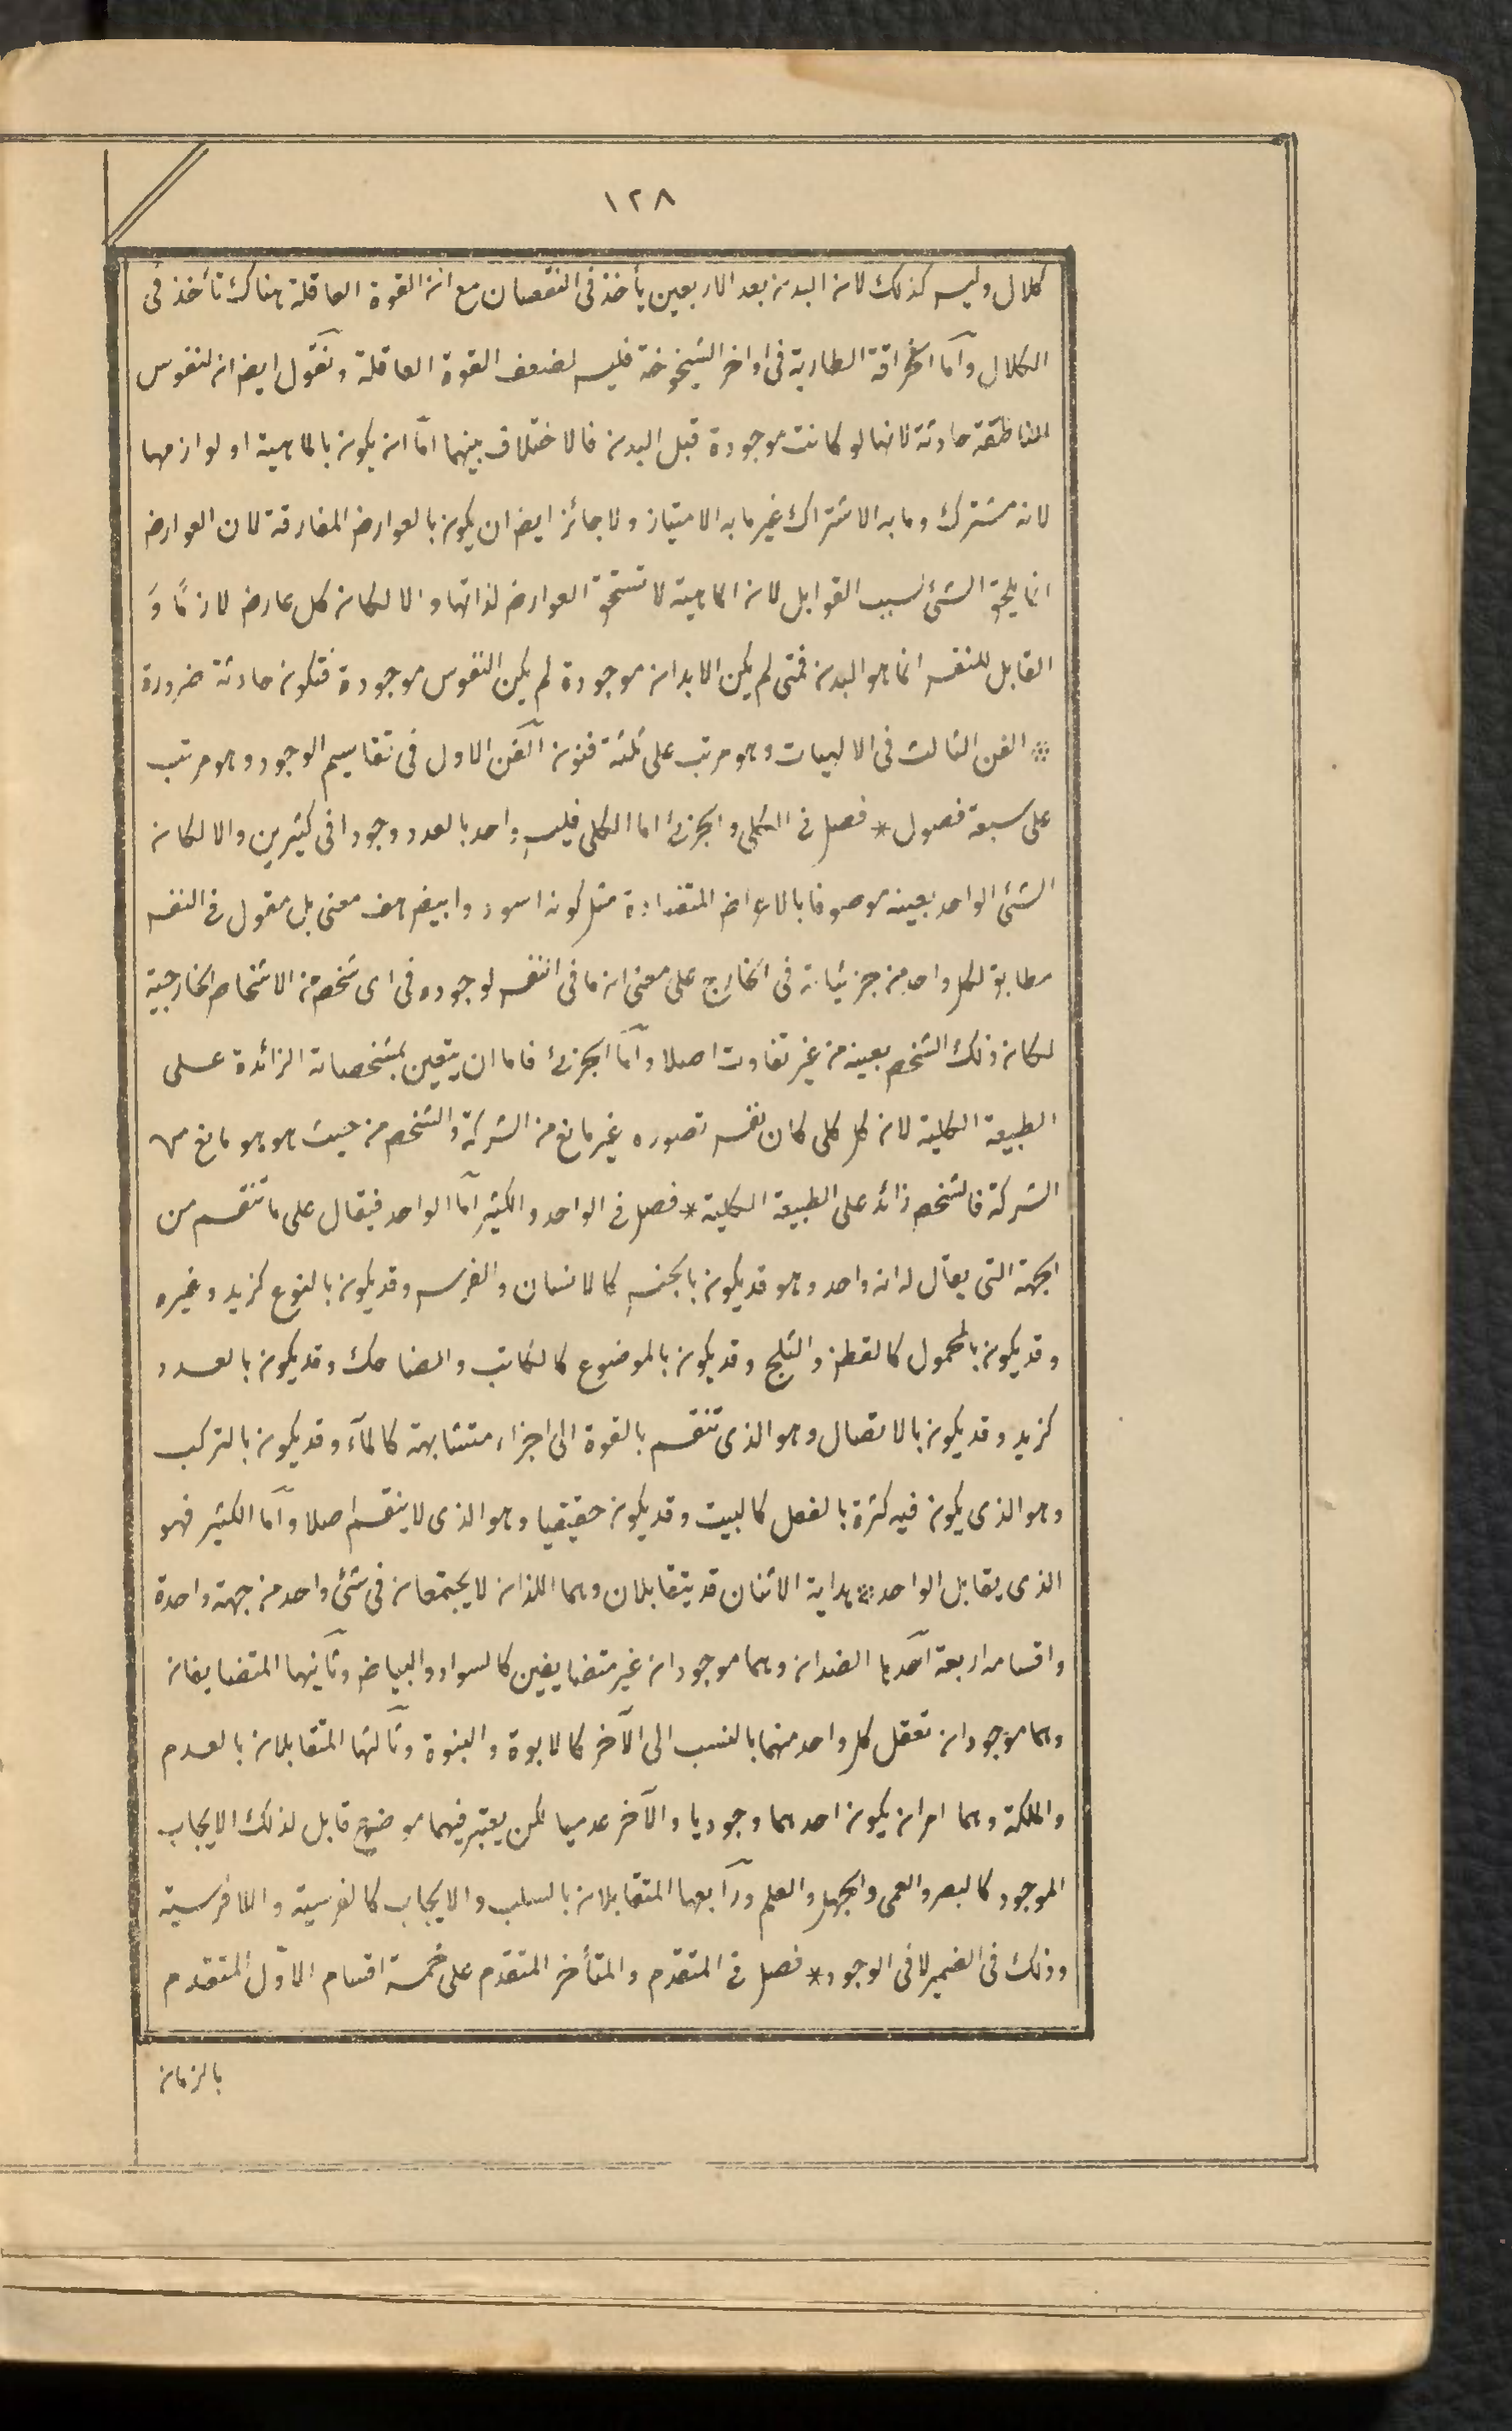 ١٢٨
كلال وليس كذلك لان البدن بعد الاربعين يأخذ فى النقصان مع ان القوة العاقلة هناك تأخذ فى
الكلال وآما الخرافة الطارية فى اواخر الشيخوخة فليس لضعف القوة العاقلة ونقول ايضا ان النفوس
الناطقة حادثة لانها لو كانت موجودة قبل البدن فالاختلاف بينهما امّا ان يكون بالماهية او لوازمها
لانه مشترك وما به الاشتراك غير ما به الامتياز ولا جائز ايضا ان يكون بالعوارض المفارقة لان العوارض
انما يلحق الشئ بسبب القوابل لان الماهية لا تستحق العوارض لذاتها والا لكان كل عارض لازمًا وَ
القابل للنفس انما هو البدن فمتى لم يكن الابدان موجودة لم يكن النفوس موجودة فتكون حادثة ضرورة
※ الفن الثالث فى الالهيات وهو مرتب على ثلثة فنون آلفن الاول فى تقاسيم الوجود وهو مرتب
على سبعة فصول * فصل فى الكلى والجزئ اما الكلى فليس واحد بالعدد وجودا فى كثيرين والا لكان
الشئ الواحد بعينه موصوفا بالاعراض المتضادة مثل كونه اسود وابيض هف معنى بل مقول فى النفس
مطابق لكل واحد من جزئياته فى الخارج على معنى ان ما فى النفس لو وجد فى اى شخص من الاشخاص الخارجية
لكان ذلك الشخص بعينه من غير تفاوت اصلا وآمّا الجزئ فاما ان يتعين بمشخصاته الزائدة على
الطبيعة الكلية لان كل كلى كان نفس تصوره غير مانع من الشركة والشخص من حيث هو هو مانع من
الشركة فالشخص زائد على الطبيعة الكلية * فصل فى الواحد والكثير آمّا الواحد فيقال على ما تنقسم من
الجهة التى يقال له انه واحد وهو قد يكون بالجنس كالانسان والفرس وقد يكون بالنوع كزيد وغيره
وقد يكون بالمحمول كالقطن والثلج وقد يكون بالموضوع كالكاتب والضاحك وقد يكون بالعدد
كزيد وقد يكون بالاتصال وهو الذى تنقسم بالقوة الى اجزاء متشابهة كالمآء وقد يكون بالتركب
وهو الذى يكون فيه كثرة بالفعل كالبيت وقد يكون حقيقيا وهو الذى لا ينقسم اصلا وآمّا الكثير فهو
الذى يقابل الواحد ※ هداية الاثنان قد يتقابلان وهما اللذان لا يجتمعان فى شئ واحد من جهة واحدة
واقسامه اربعة آحدها الضدان وهما موجودان غير متضايفين كالسواد والبياض وثآنيها المتضايفان
وهما موجودان تعقل كل واحد منهما بالنسب الى الآخر كالابوة والبنوة وثآلثها المتقابلان بالعدم
والملكة وهما امران يكون احدهما وجوديا والآخر عدميا لكن يعتبر فيهما موضوع قابل لذلك الايجاب
الموجود كالبصر والعمى والجهل والعلم ورآبعها المتقابلان بالسلب والايجاب كالفرسية واللافرسية
وذلك فى الضمير لا فى الوجود * فصل فى المتقدم والمتأخر المتقدم على خمسة اقسام الاوّل المتقدم
بالزمان